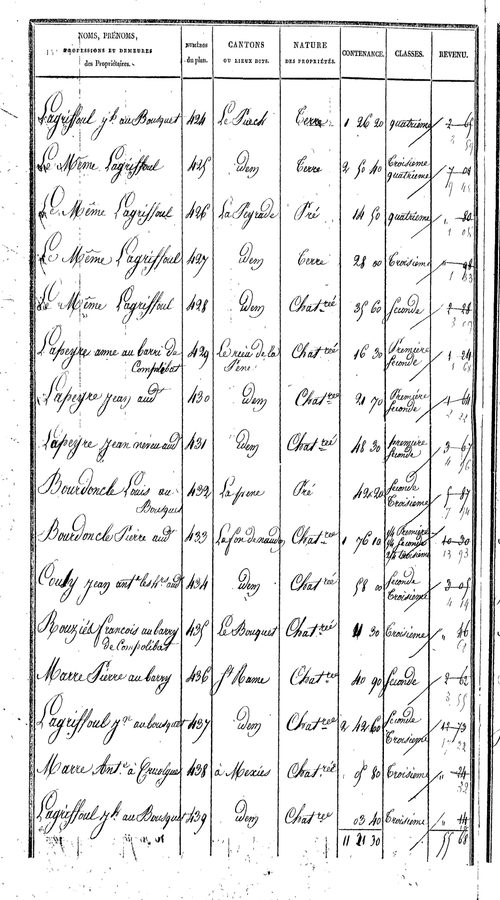 NOMS, PRÉNOMS, PROFESSIONS ET DEMEURES des Propriétaires. NUMÉROS du plan. CANTONS OU LIEUX DITS. NATURE DES PROPRIÉTÉS. CONTENANCE. CLASSES. REVENU.
Lagriffoul jh. au Bousquet 424 Le Puech Terre 1 26 20 quatrième 2 65
Le Même Lagriffoul 425 idem Terre 2 50 40 Troisième quatrième 7 08
Le Même Lagriffoul 426 La Peyrade Pré 14 50 quatrième " 80
Le Même Lagriffoul 427 idem Terre 28 00 Troisième " 98
Le Même Lagriffoul 428 idem Chat.rée 35 60 Seconde 2 28
Lapeyre anne au barri de Compolibat 429 Le rieu de la Pène Chat.rée 16 30 Première Seconde 1 24
Lapeyre jean aud 430 idem Chat.rée 21 70 Première Seconde 1 64
Lapeyre jean neveu aud 431 idem Chat.rée 48 30 première Seconde 3 67
Bourdoncle Louis au Bousquet 432 La pene Pré 42 20 Seconde Troisième 5 87
Bourdoncle Pierre aud 433 La fon de naudy Chat.rée 1 76 10 Première Seconde Troisième 10 30
13 93
jean ant.e aud 434 idem Chat.rée 58 00 Seconde Troisième 3 05
Rouziés francois au barry de Compolibat 435 Le Bouquet Chat.rée 11 30 Troisième " 46
Marre Pierre au barry 436 St. Chat.rée 40 90 Seconde 2 62
Lagriffoul jh. au bousquet 437 idem Chat.rée 2 42 60 Seconde Troisième 73
Marre Ant.e à 438 à Mexies Chat.rée 05 80 Troisième " 24
Lagriffoul jh. au Bousquet 439 idem Chat.rée 03 40 Troisième " 14
11 21 30 55 68